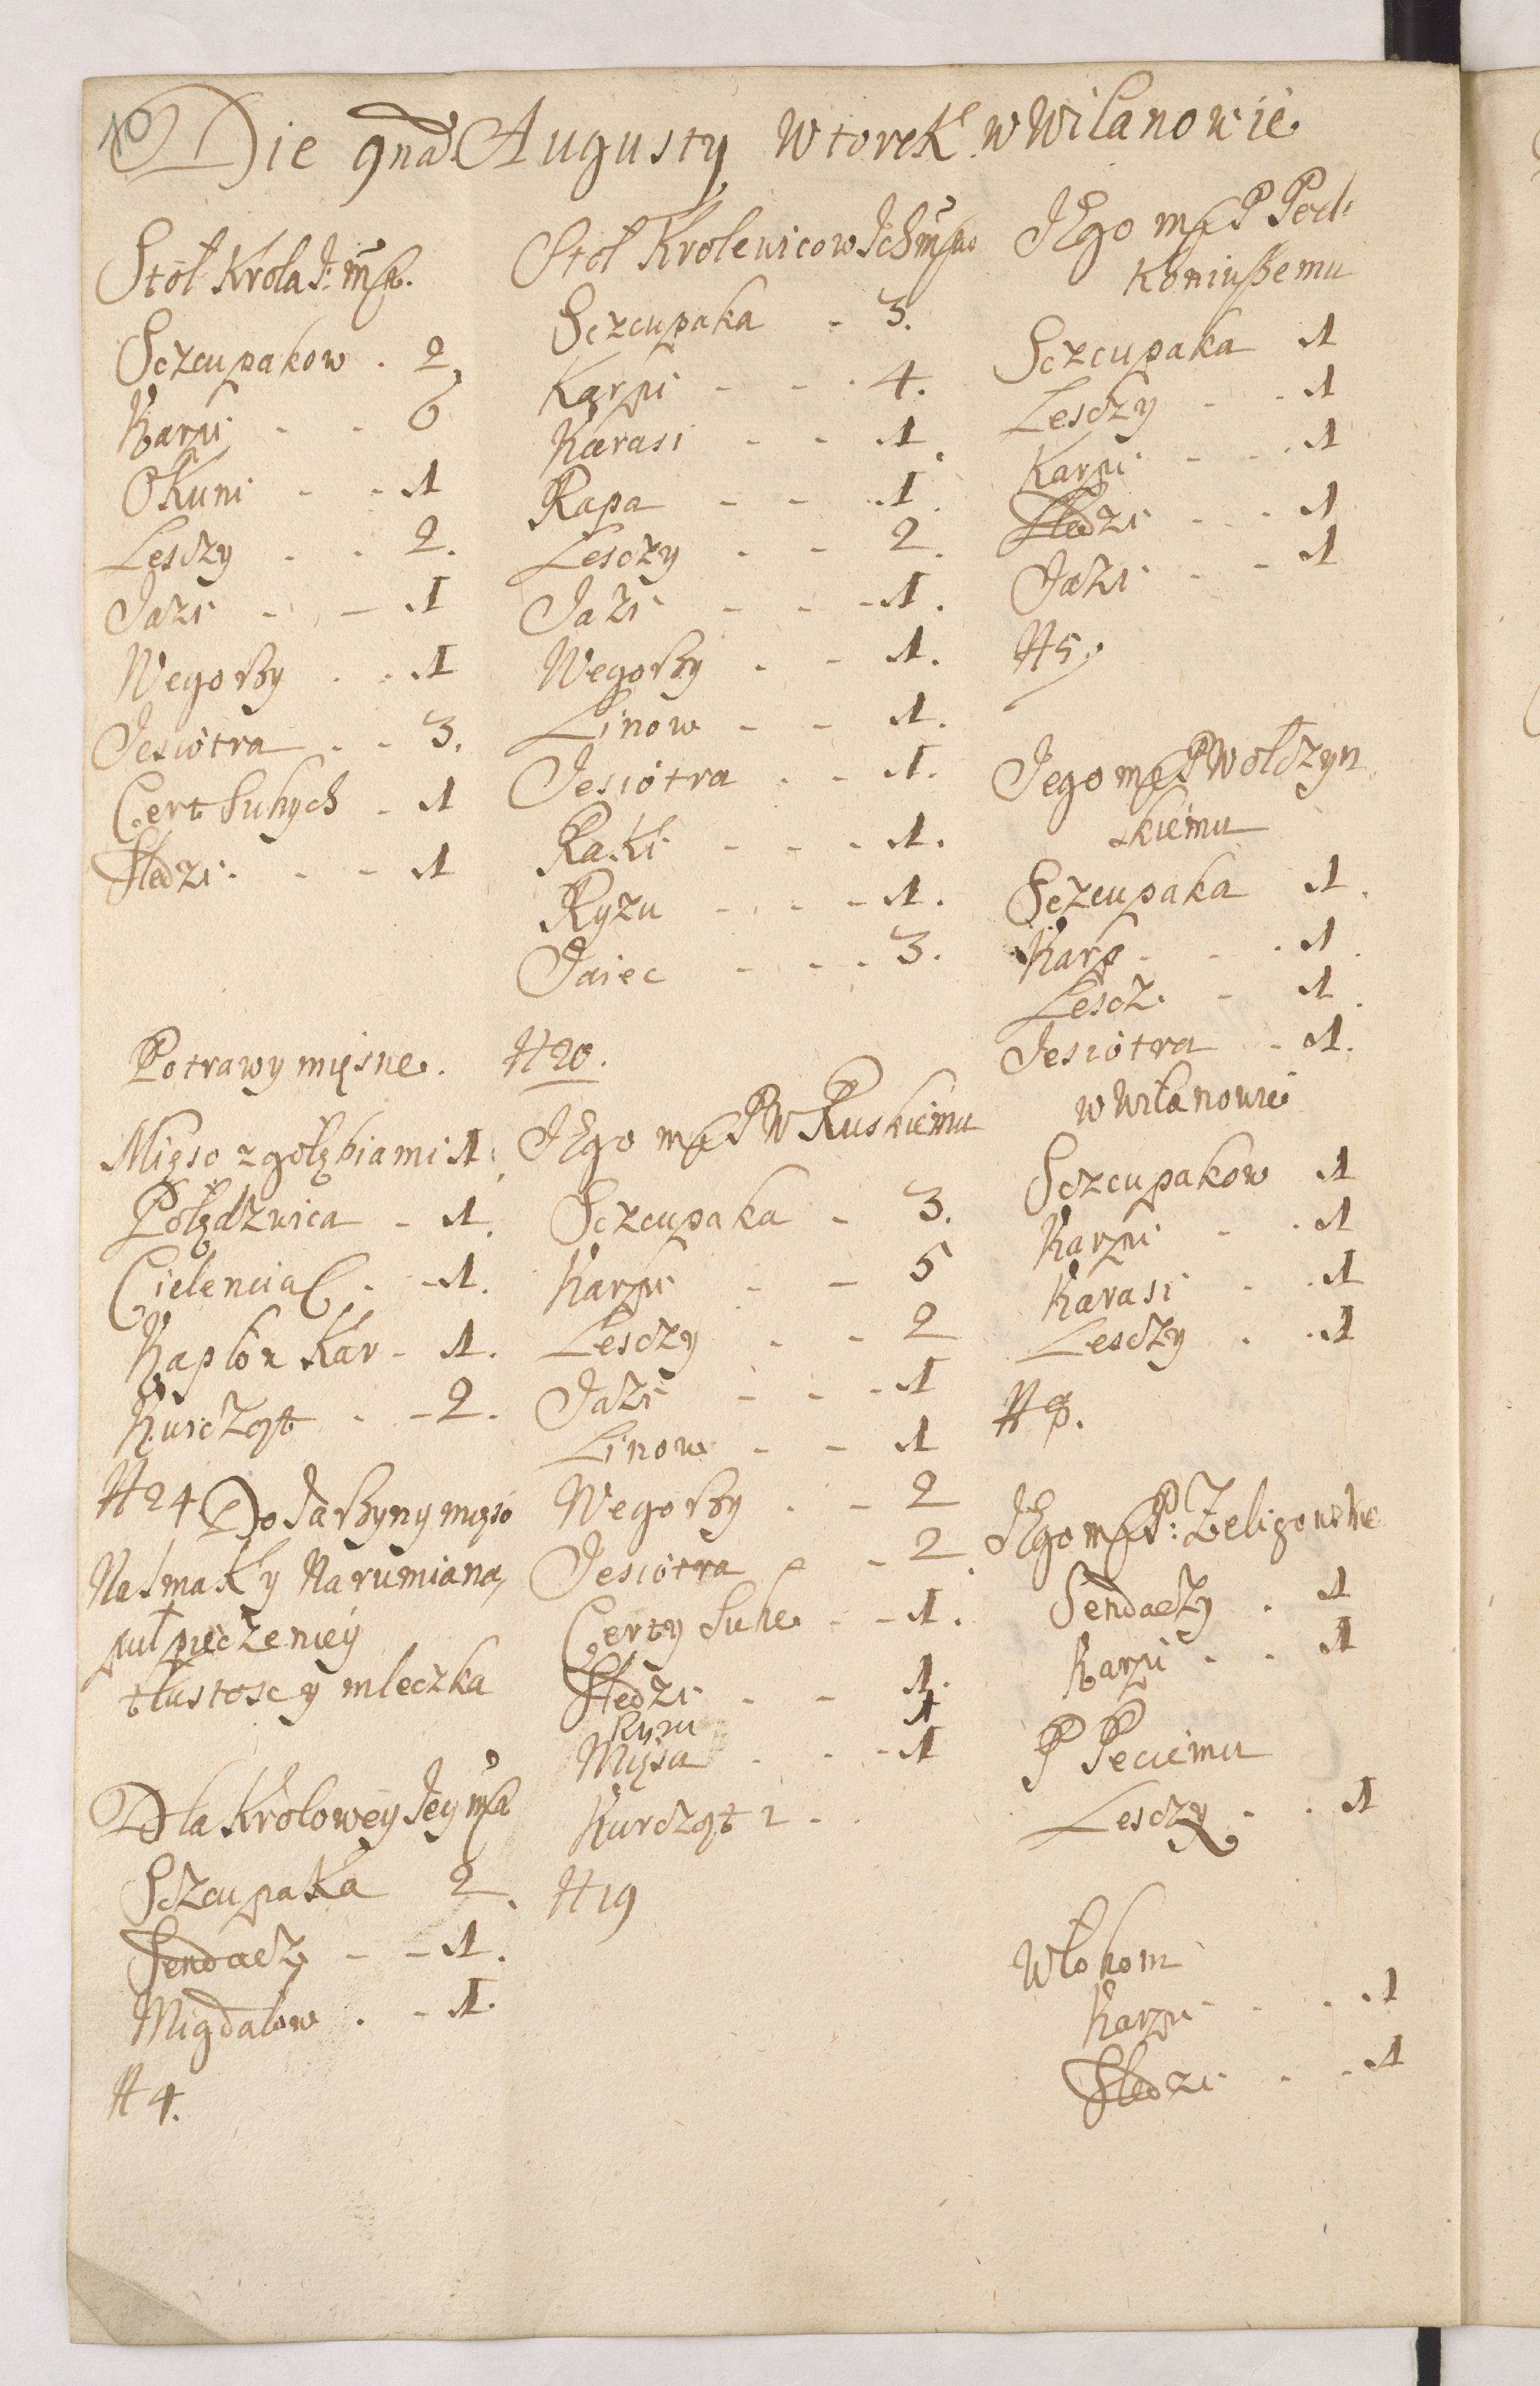 10
Die 9na Augusty Wtorek w Wilanowie
Stoł Krola J: mſci.
Sczcupakow . 2
Karpi - - 6
Okuni - - 1
Lesczy - - 2.
Jazi - - 1
Wegorzy . . 1
Jesiotra - - 3.
Cert Suhych - 1
Sledzi - - 1
Potrawy mięsne.
Mięso z gołębiami 1
Polędzwica - 1.
Cielencia C. - 1.
Kapłon Kar - 1.
Kurcząt - - 2.
H 24 Do Jarzyny mięso
Na Smak y Narumiana,
puł pieczeniey
tłustosc y mleczka
Dla Krolowey Jey mſci
Sczcupaka 2.
Sendacz - - 1.
Migdałow . - 1.
H 4.
Stoł Krolewicow Ichmſciow
Sczcupaka - 3.
Karpi - - . 4.
Karasi - - 1.
Rapa - - 1.
Lesczy - - 2.
Jazi - - - 1.
Wegorzy . - 1.
Linow - - 1.
Jesiotra - - 1.
Raki - - - 1.
Ryzu - - - 1.
Jaiec - - - 3.
H 20.
JEgo mſci P W Ruskiemu
Sczcupaka - 3.
Karpi - - 5
Lesczy - - 2
Jazi - - - 1
Linow - - 1
Wegorzy . - 2
Jesiotra - - 2.
Certy Suhe - - 1.
Sledzi - - 1.
Ryzu 1
Mięsa - - - 1
Kurcząt 2 - .
H 19
JEgo mſci P Pod:
Koniuszemu
Sczcupaka 1
Lesczy - - 1
Karpi - - . 1
Sledzi - - 1
Jazi - - 1
H 5.
Jego mſci P Wołczyn
skiemu
Sczcupaka 1.
Karp - - . 1.
Lescz. - 1.
Jesiotra - 1.
w Wilanowie
Sczcupakow 1
Karpi - . 1
Karasi - . 1
Lesczy . . 1
H 8.
JEgo mſci P: Zeligowskie
Sendaczy . 1
Karpi - - 1
P Peciemu
Lesczy - . 1
Włohom
Karpi - . - . 1
Sledzi - - 1